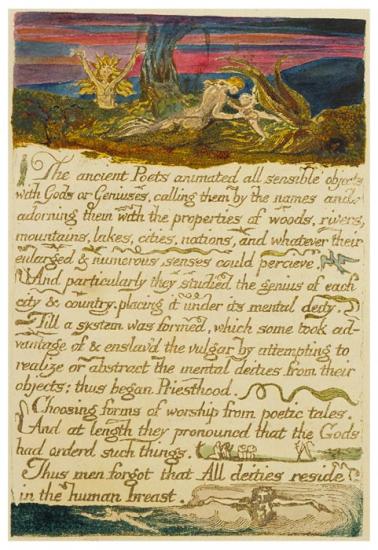 The ancient Poets animated all sensible objects
with Gods or Geniuses, calling them by the names and
adorning them with the properties of woods, rivers,
mountains, lakes, cities, nations, and whatever their
enlarged & numerous senses could percieve.
And particularly they studied the genius of each
city & country. placing it under its mental deity.
Till a system was formed, which some took ad-
vantage of & enslav'd the vulgar by attempting to
realize or abstract the mental deities from their
objects: thus began Priesthood.
Choosing forms of worship from poetic tales.
And at length they pronouncd that the Gods
had orderd such things.
Thus men forgot that All deities reside
in the human breast.